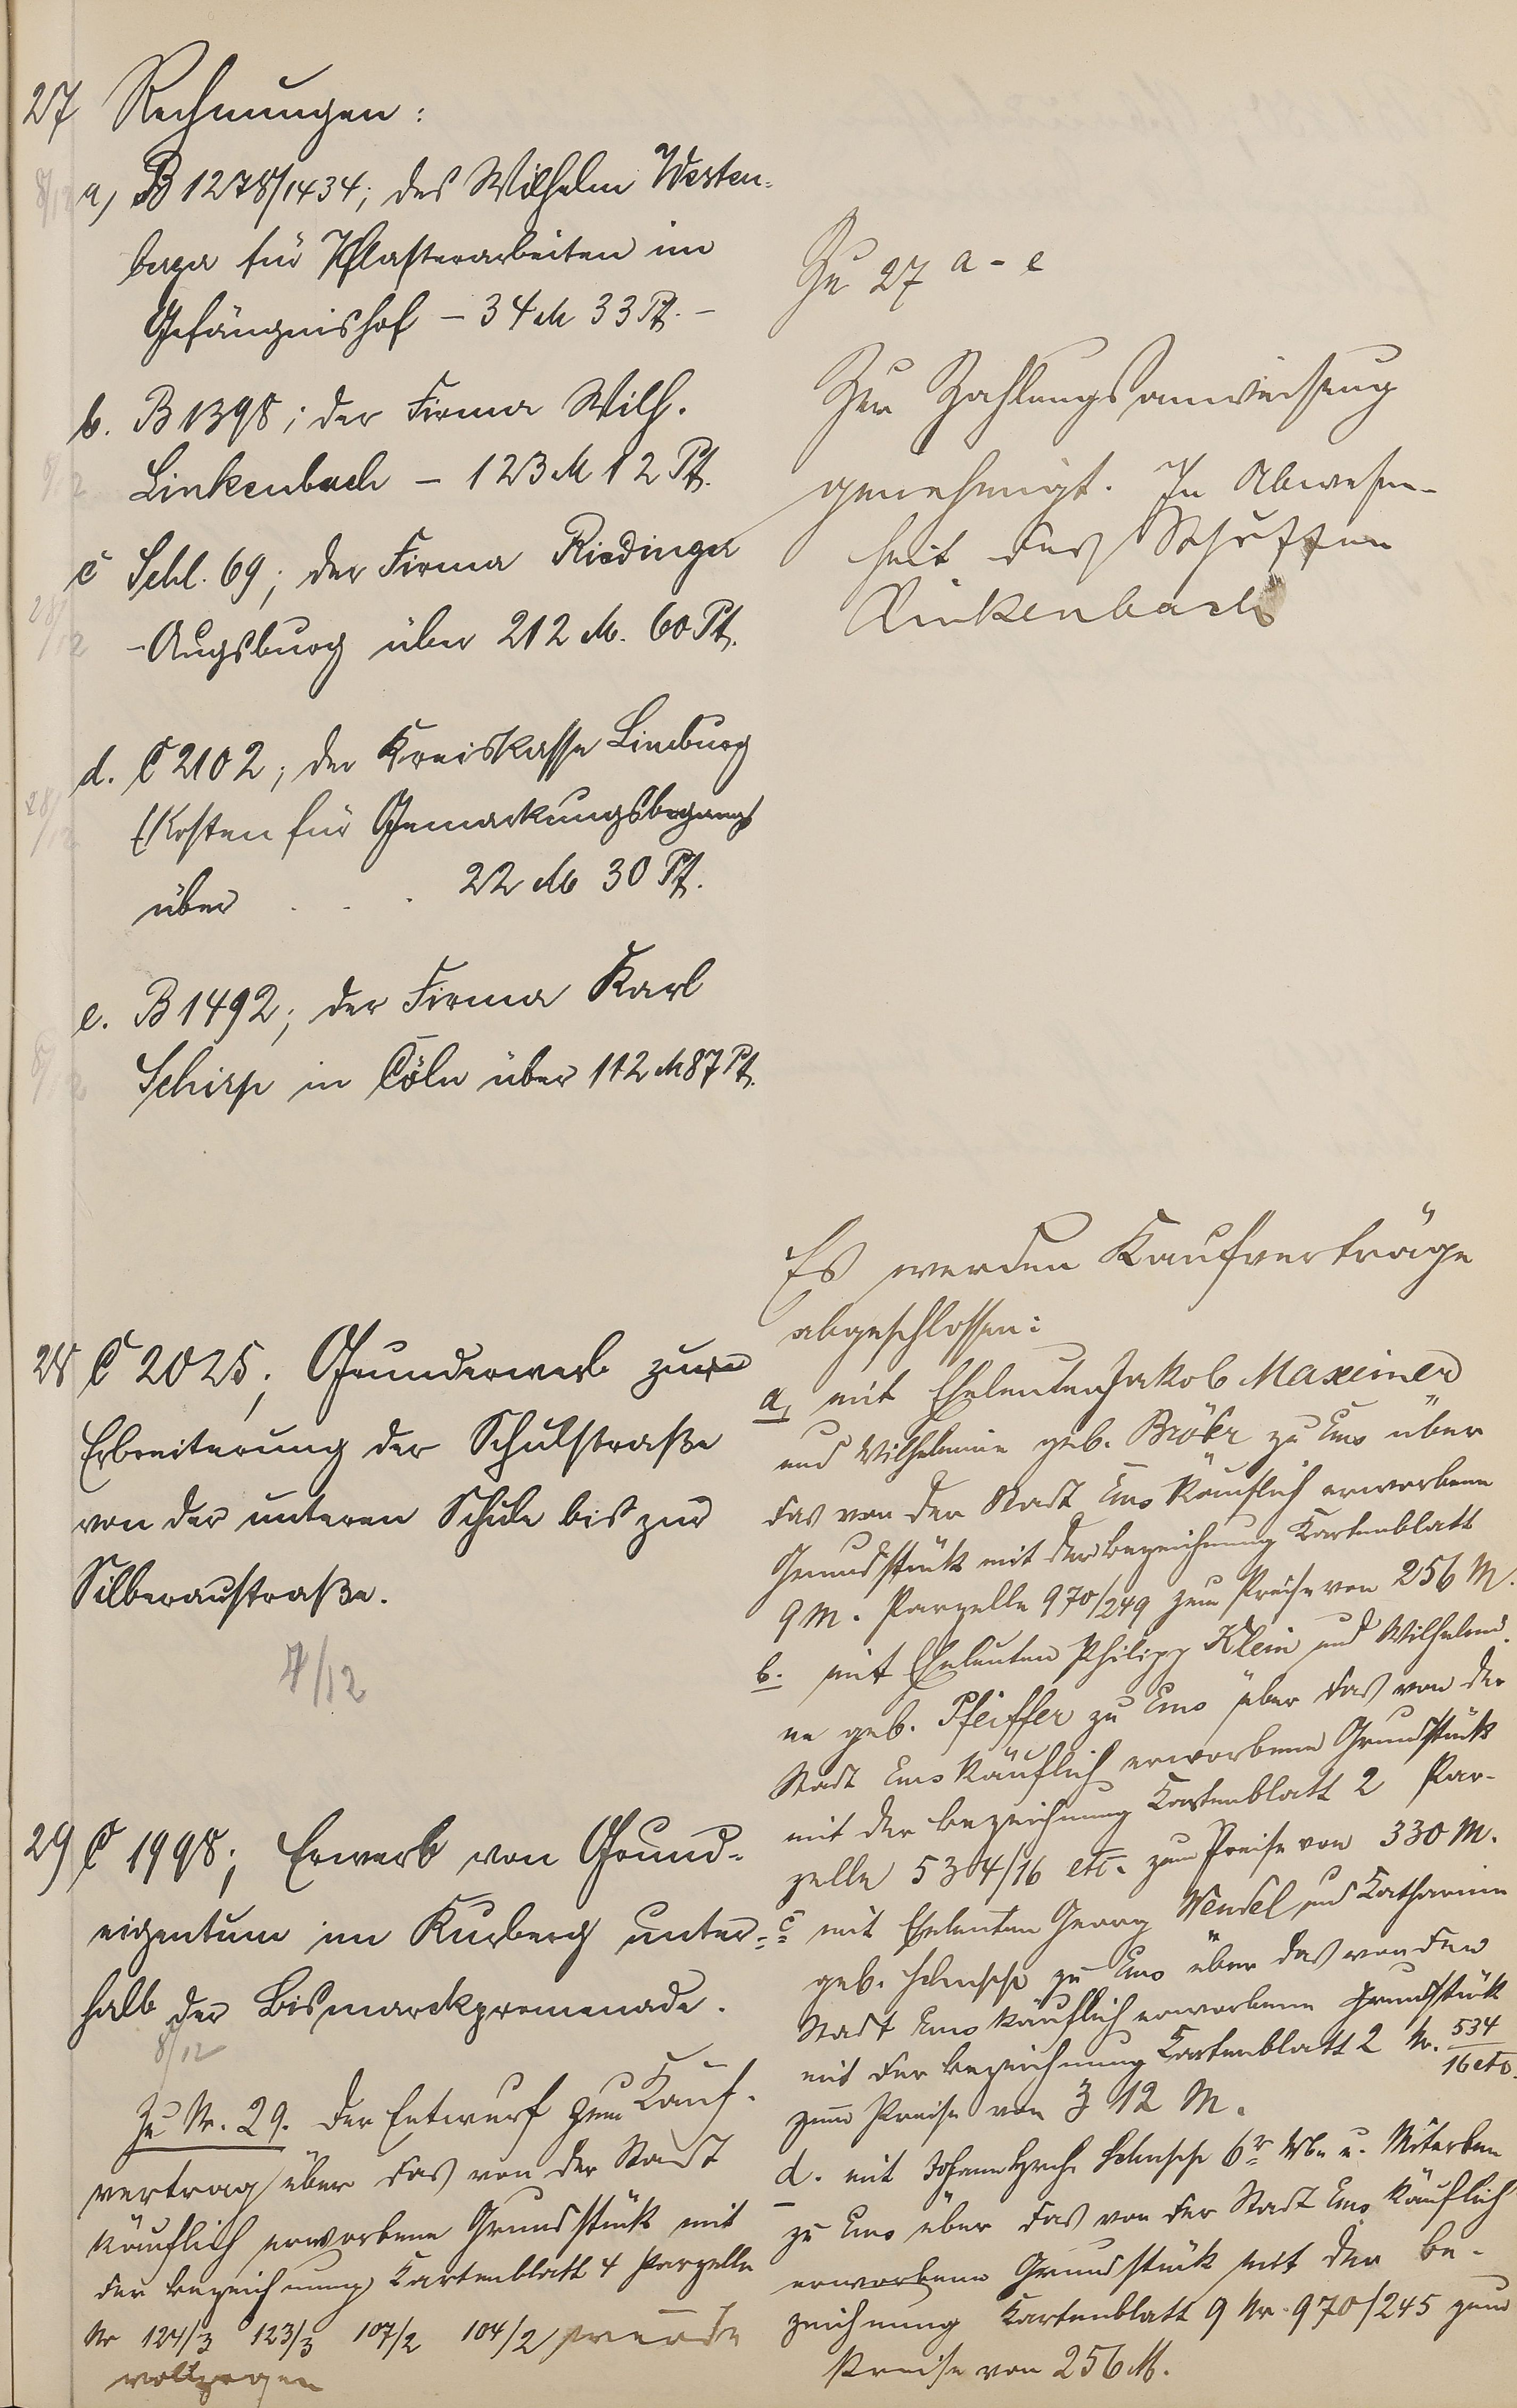 27 Rechnungen:
8/12 a) B 1278/1434; des Wilhelm Westen-
berger für Pflasterarbeiten im
Gefängnishof – 34 M 33 Pf. –
b. B 1398; der Firma Wilh.
8/12 Linkenbach – 123 M 12 Pf.
c Schl. 69; der Firma Riedinger
28/12 -Augsburg über 212 M. 60 Pf.
d. C 2102; der Kreiskasse Limburg
28/12 (Kosten für Gemarkungsbegang)
über . . . 22 M 30 Pf.
e. B 1492; der Firma Karl
8/12 Schirp in Cöln über 112 M 87 Pf.
Zu 27 a - e
Zur Zahlungsanweisung
genehmigt. In Abwesen-
heit des Schöffen
Linkenbach
28 C 2025; Grunderwerb zur
Erbreiterung der Schulstraße
von der unteren Schule bis zur
Silberaustraße.
7/12
Es werden Kaufverträge
abgeschlossen:
a, mit Eheleuten Jakob Maxeiner
und Wilhelmine geb. zu Ems über
das von der Stadt Ems käuflich erworbene
Grundstück mit der Bezeichnung Kartenblatt
9 M. Parzelle 970/249 zum Preise von 256 M.
b. mit Eheleuten Philipp Klein und Wilhelmi-
ne geb. Pfeiffer zu Ems über das von der
Stadt Ems käuflich erworbene Grundstück
mit der Bezeichnung Kartenblatt 2 Par-
zelle 534/16 etc. zum Preise von 330 M.
c mit Eheleuten Georg Wendel und Katharine
geb. zu Ems über das von der
Stadt Ems käuflich erworbene Grundstück
mit der Bezeichnung Kartenblatt 2 Nr. 534/16 etc.
zum Preise von 312 M.
d. mit Johann 6r Wwe u. Miterben
zu Ems über das von der Stadt Ems käuflich
erworbene Grundstück mit der Be-
zeichnung Kartenblatt 9 Nr. 970/245 zum
Preise von 256 M.
29 C 1998; Erwerb von Grund-
eigentum im Kurberg unter-
halb der Bismarckpromenade.
8/12
Zu Nr. 29. Der Entwurf zum Kauf-
vertrag über das von der Stadt
käuflich erworbene Grundstück mit
der Bezeichnung Kartenblatt 4 Parzelle
Nr 124/3 123/3 107/2 104/2 wurde
vollzogen